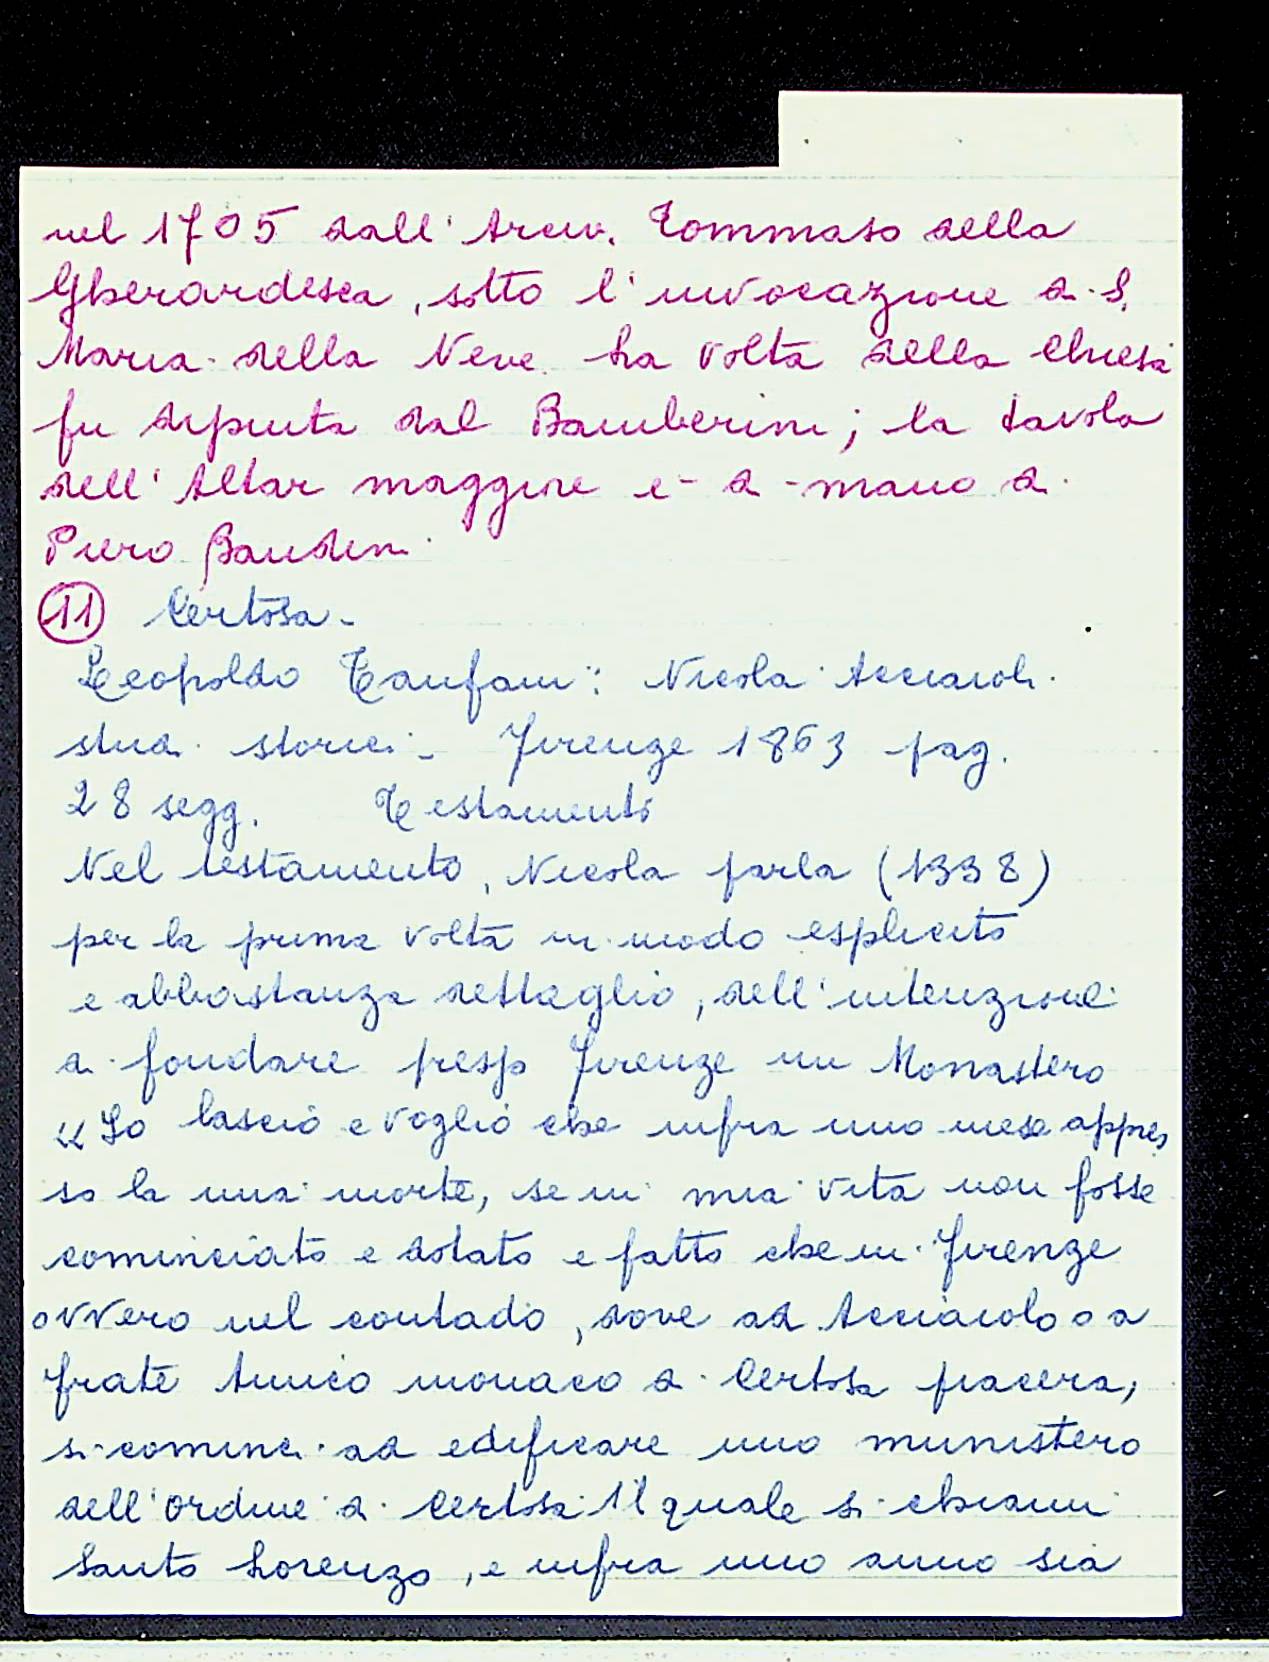 nel 1705 dall'Arciv. Tommaso della
Gherardesca, sotto l'invocazione di S.
Maria della Neve. La volta della chiesa
fu dipinta dal Bamberini; la tavola
dell'Altar maggiore e- di mano di
Piero Dandini.
11 Certosa -
Leopoldo Tanfani: Nicola Acciaioli.
studi storici - Firenze 1863 pag.
28 segg. Testamento
Nel testamento, Nicola parla (1338)
per la prima volta in modo esplicito
e abbastanza dettaglio, dell'intenzione
di fondare presso Firenze un Monastero
"Io lascio e voglio che infra uno mese appres
so la mia morte, se in mia vita non fosse
cominciato e dotato e fatto che in Firenze
ovvero nel contado, dove ad Acciaiolo o a
frate Amico monaco di Certosa piacera,
si cominci ad edificare uno munistero
dell'ordine di Certosa il quale si chiami
Santo Lorenzo, e infra uno anno sia